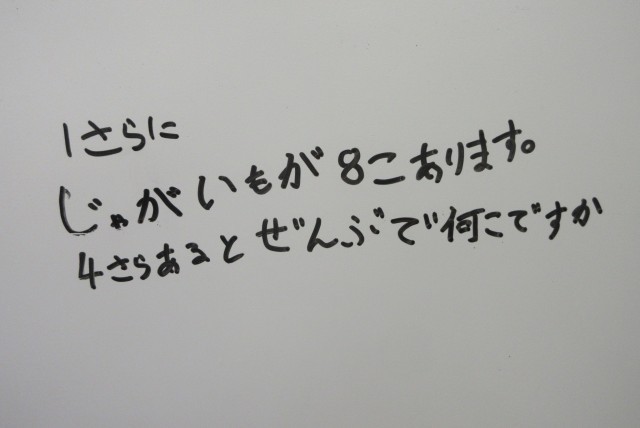 1さらに
じゃがいもが8こあります。
4さらあるとぜんぶで何こですか